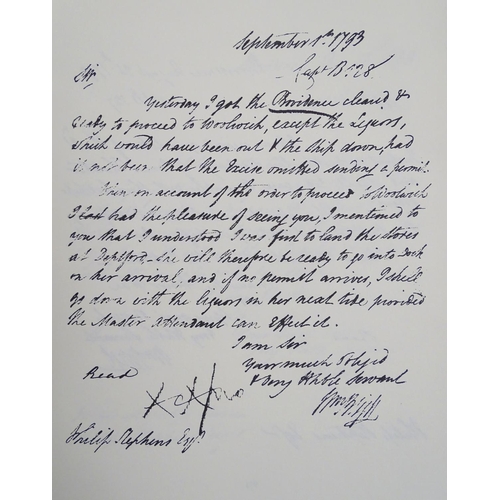 September 1st 1793
Capt B 228
Sir
Yesterday I got the Providence clear'd &
ready to proceed to Woolwich, except the Liquors,
which would have been out & the Ship down, had
it not been that the Excise omitted sending a permit.
on account of the order to proceed to Woolwich
I had the pleasure of seeing you, I mentioned to
you that I understood I was first to land the stores
at Deptford, she will therefore be ready to go into Dock
on her arrival, and if no permit arrives, I shall
go down with the liquors in her next tide provided
the Master Attendant can effect it.
I am Sir
Your much Oblig'd
& Very Hble Servant
Wm Bligh
Read
Philip Stephens Esqr.